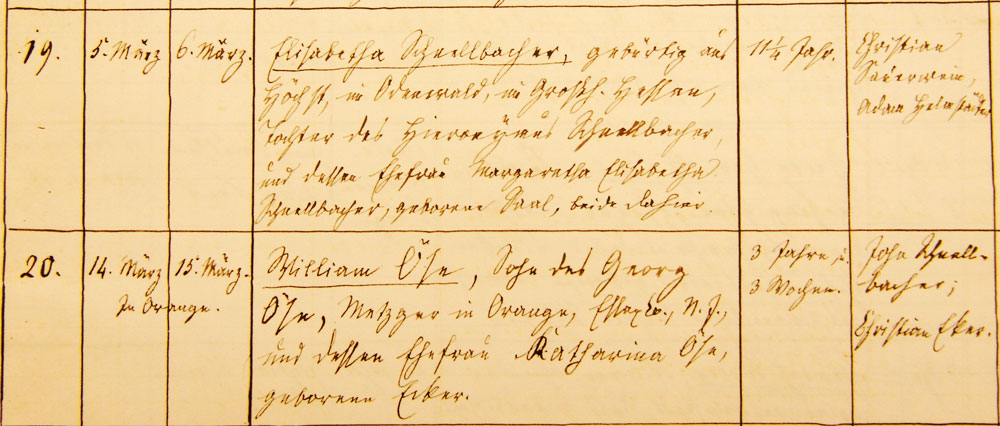 19.
5. März
6. März.
Elisabetha Schnellbacher, gebürtig aus
Höchst, im Odenwald, im Grosh. Hessen,
Tochter des Hieronymus Schnellbacher,
und dessen Ehefrau Margaretha Elisabetha
Schnellbacher, geborene Saal, beide dahier.
11¼ Jahr.
Christian
Sauerwein,
Adam
20.
14. März
15. März.
In Orange.
William Öse, Sohn des Georg
Öse, Metzger in Orange, Essex Co., N. J.,
und dessen Ehefrau Katharina Öse,
geborene Ecker.
3 Jahre, u.
3 Wochen.
John Schnell-
bacher;
Christian Eker.